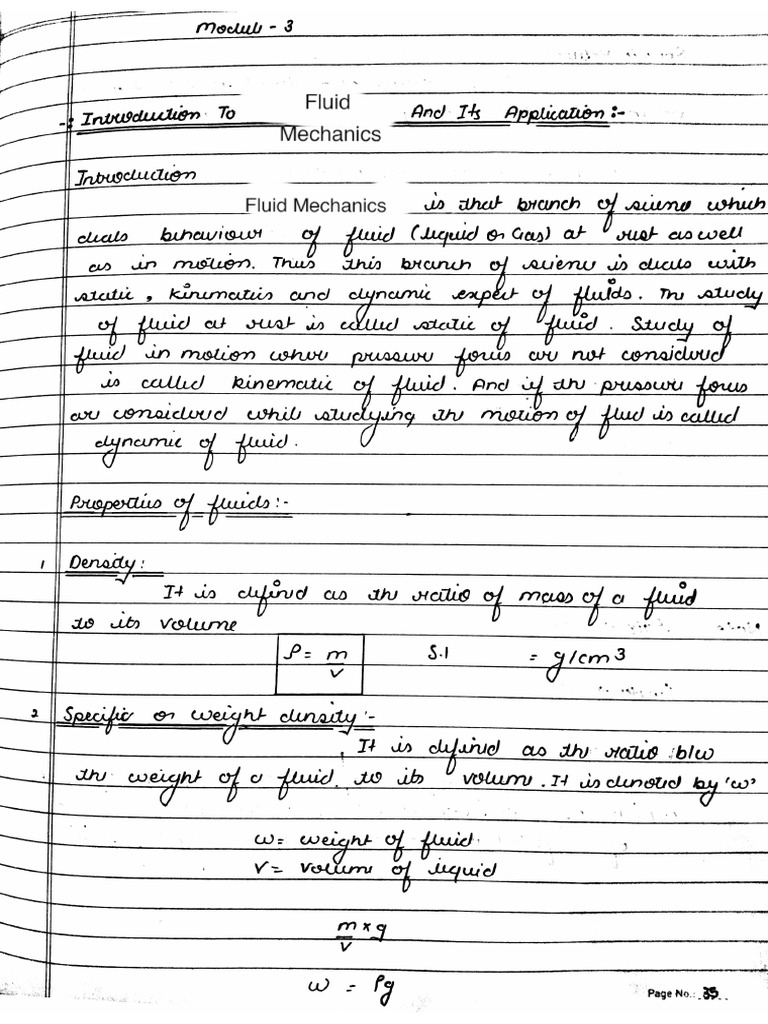 Modul - 3
-: Introduction To Fluid Mechanics And Its Application:-
Introduction
Fluid Mechanics is that branch of sciene which
deals behaviour of fluid (liquid or Gas) at rest as well
as in motion. Thus this branch of sciene is deals with
static, kinematics and dynamic expect of fluids. The study
of fluid at rest is called static of fluid. Study of
fluid in motion where pressure forces are not considered
is called kinematic of fluid. And if the pressure forces
are considered while studying the motion of flued is called
dynamic of fluid.
Properties of fluids:-
1 Density:
It is defined as the ratio of mass of a fluid
to its volume
ρ = m/v S.I = g/cm3
2 Specific or weight density:-
It is defined as the ratio b/w
the weight of a fluid to its volume. It is denoted by 'w'
w = weight of fluid
v = volume of liquid
m/v × g
w = ρg
Page No.: 35